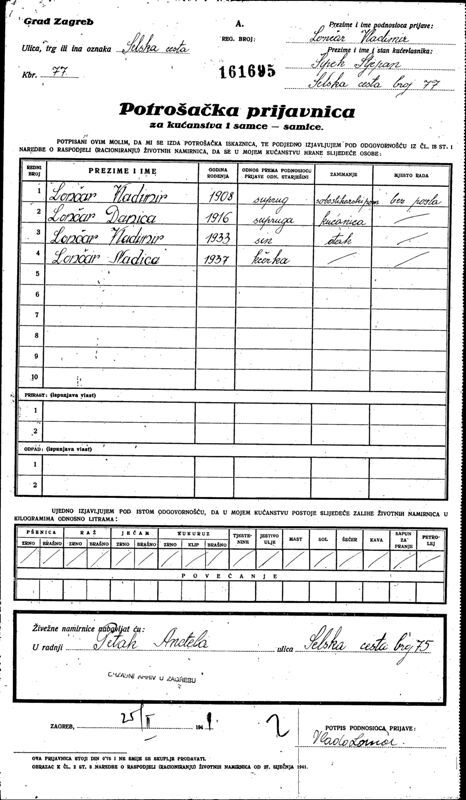 Grad Zagreb
A.
REG. BROJ:
161695
Prezime i ime podnosioca prijave:
Lončar Vladimir
Prezime i ime i stan kućevlasnika:
Stjepan
Selska cesta broj 77
Ulica, trg ili ina oznaka Selska cesta
Kbr. 77
Potrošačka prijavnica
za kućanstva i samce — samice.
POTPISANI OVIM MOLIM, DA MI SE IZDA POTROŠAČKA ISKAZNICA, TE PODJEDNO IZJAVLJUJEM POD ODGOVORNOŠĆU IZ ČL. 18 ST. 1
NAREDBE O RASPODJELI (RACIONIRANJU) ŽIVOTNIH NAMIRNICA, DA SE U MOJEM KUĆANSTVU HRANE SLIJEDEĆE OSOBE:
REDNI BROJ PREZIME I IME GODINA ROĐENJA ODNOS PREMA PODNOSIOCU PRIJAVE ODN. STARJEŠINI ZANIMANJE MJESTO RADA
1 Lončar Vladimir 1908 suprug bez posla
2 Lončar Danica 1916 supruga kućanica
3 Lončar Vladimir 1933 sin đak
4 Lončar Nadica 1937 kćerka
5
6
7
8
9
10
PRIRAST: (ispunjava vlast)
1
2
OTPAD: (ispunjava vlast)
1
2
UJEDNO IZJAVLJUJEM POD ISTOM ODGOVORNOŠĆU, DA U MOJEM KUĆANSTVU POSTOJE SLIJEDEĆE ZALIHE ŽIVOTNIH NAMIRNICA U
KILOGRAMIMA ODNOSNO LITRAMA:
PŠENICA RAŽ JEČAM KUKURUZ TJESTENINE JESTIVO ULJE MAST SOL ŠEĆER KAVA SAPUN ZA PRANJE PETROLEJ
ZRNO BRAŠNO ZRNO BRAŠNO ZRNO BRAŠNO ZRNO KLIP BRAŠNO
POVEĆANJE
Živežne namirnice nabavljat ću:
U radnji Petak Anđela ulica Selska cesta broj 75
DRŽAVNI ARHIV U ZAGREBU
ZAGREB, 25/I 1941.
2
POTPIS PODNOSIOCA PRIJAVE:
Vlado Lončar
OVA PRIJAVNICA STOJI DIN 0·75 I NE SMIJE SE SKUPLJE PRODAVATI.
OBRAZAC K ČL. 2 ST. 2 NAREDBE O RASPODJELI (RACIONIRANJU) ŽIVOTNIH NAMIRNICA OD 27. SIJEČNJA 1941.